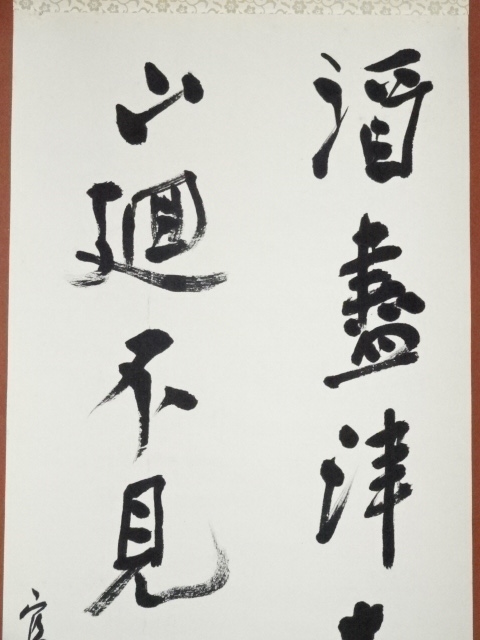 酒盡津
山廻不見